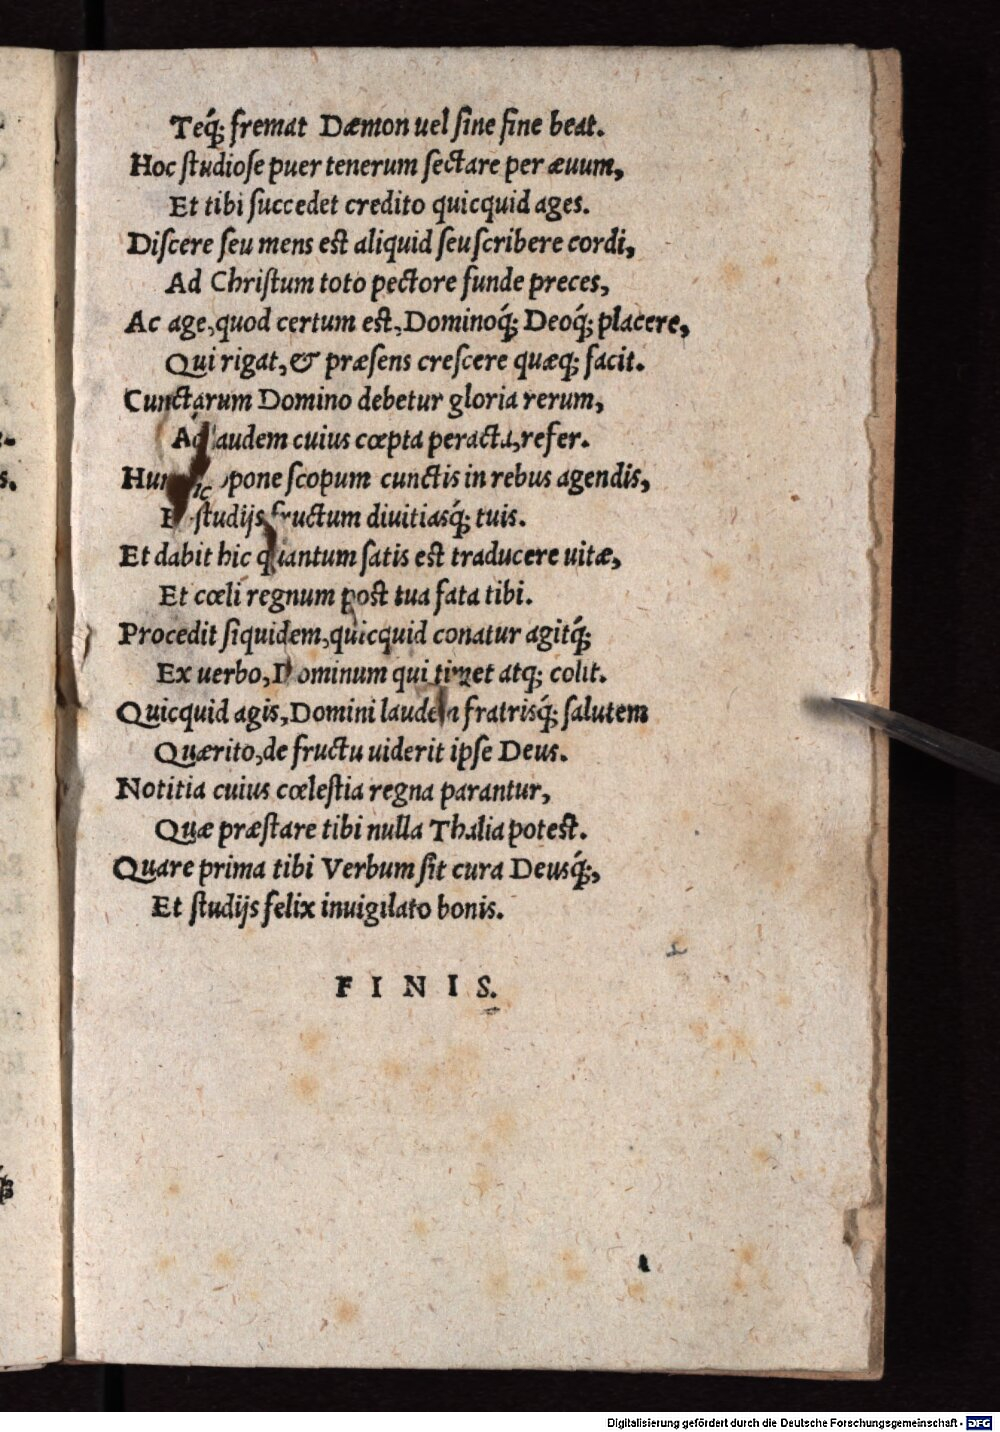 Teq́; fremat Dæmon uel ſine fine beat.
Hoc ſtudioſe puer tenerum ſectare per æuum,
Et tibi ſuccedet credito quicquid ages.
Diſcere ſeu mens eſt aliquid ſeu ſcribere cordi,
Ad Chriſtum toto pectore funde preces,
Ac age, quod certum eſt, Dominoq́; Deoq́; placere,
Qui rigat, & præſens creſcere quæq; facit.
Cunctarum Domino debetur gloria rerum,
Ad laudem cuius cœpta peracta, refer.
pone ſcopum cunctis in rebus agendis,
ſtudijs fructum diuitiasq́; tuis.
Et dabit hic quantum ſatis eſt traducere uitæ,
Et cœli regnum poſt tua fata tibi.
Procedit ſiquidem, quicquid conatur agitq́;
Ex uerbo, Dominum qui timet atq; colit.
Quicquid agis, Domini laudem fratrisq́; ſalutem
Quærito, de fructu uiderit ipſe Deus.
Notitia cuius cœleſtia regna parantur,
Quæ præſtare tibi nulla Thalia poteſt.
Quare prima tibi Verbum ſit cura Deusq́;,
Et ſtudijs felix inuigilato bonis.
FINIS.
Digitalisierung gefördert durch die Deutsche Forschungsgemeinschaft - DFG